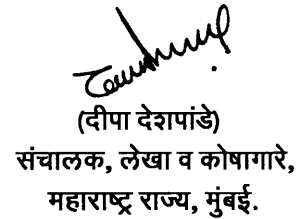 (दीपा देशपांडे)
संचालक, लेखा व कोषागारे,
महाराष्ट्र राज्य, मुंबई.